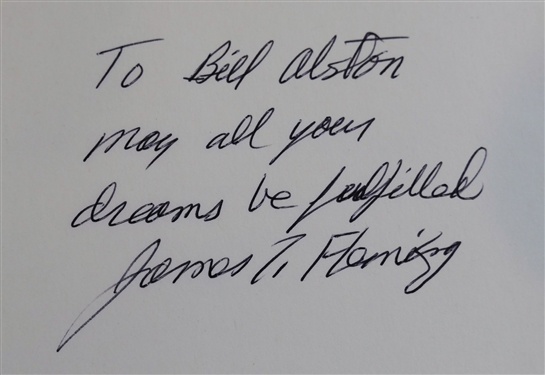 To Bill Alston
may all your
dreams be fulfilled
James T. Fleming